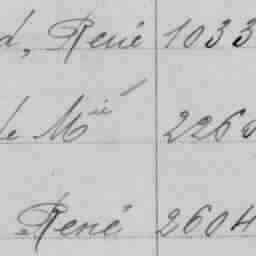 d, René 1033
de M^ie 226
René 2604